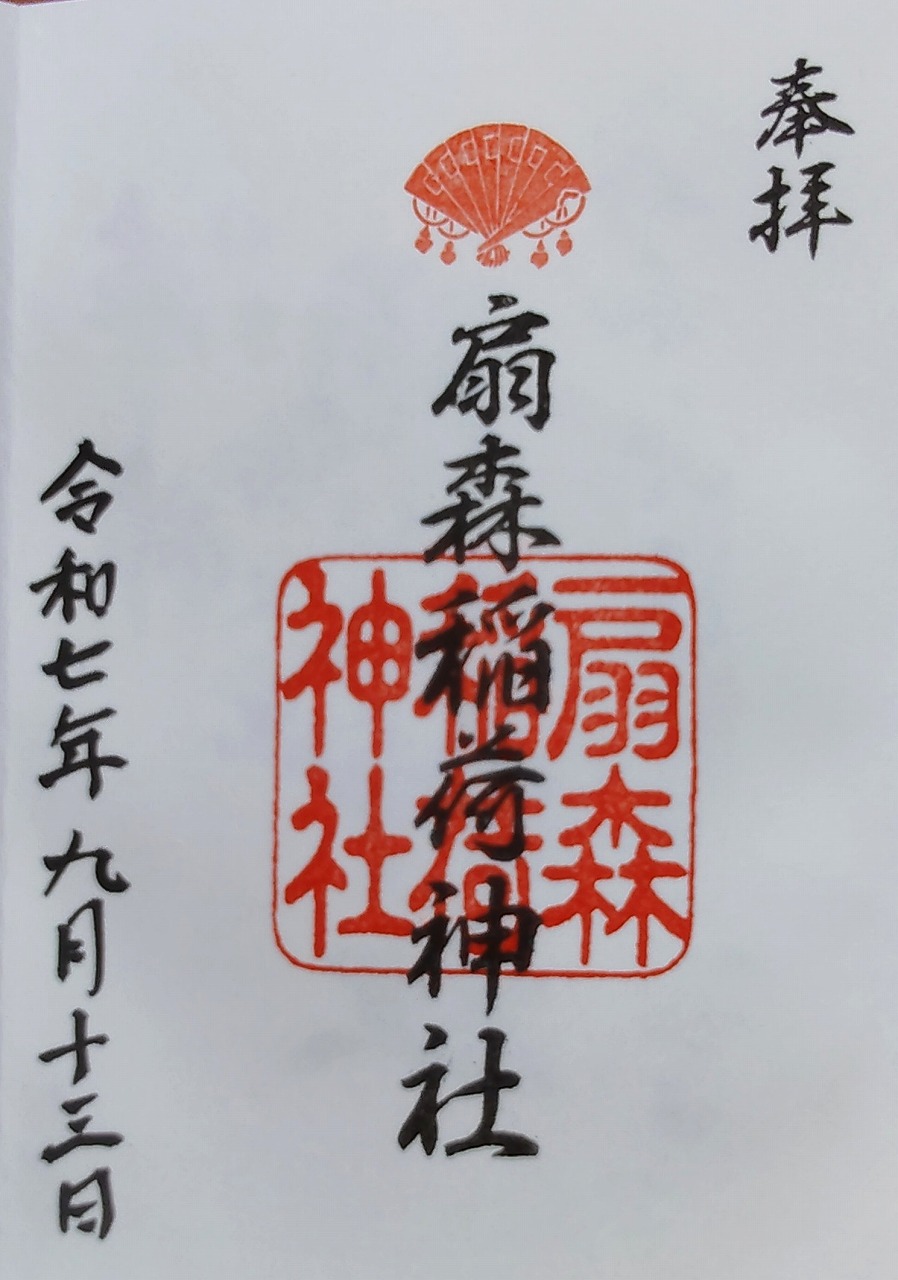 奉拝
扇森稲荷神社
扇森
稲荷
神社
令和七年九月十三日